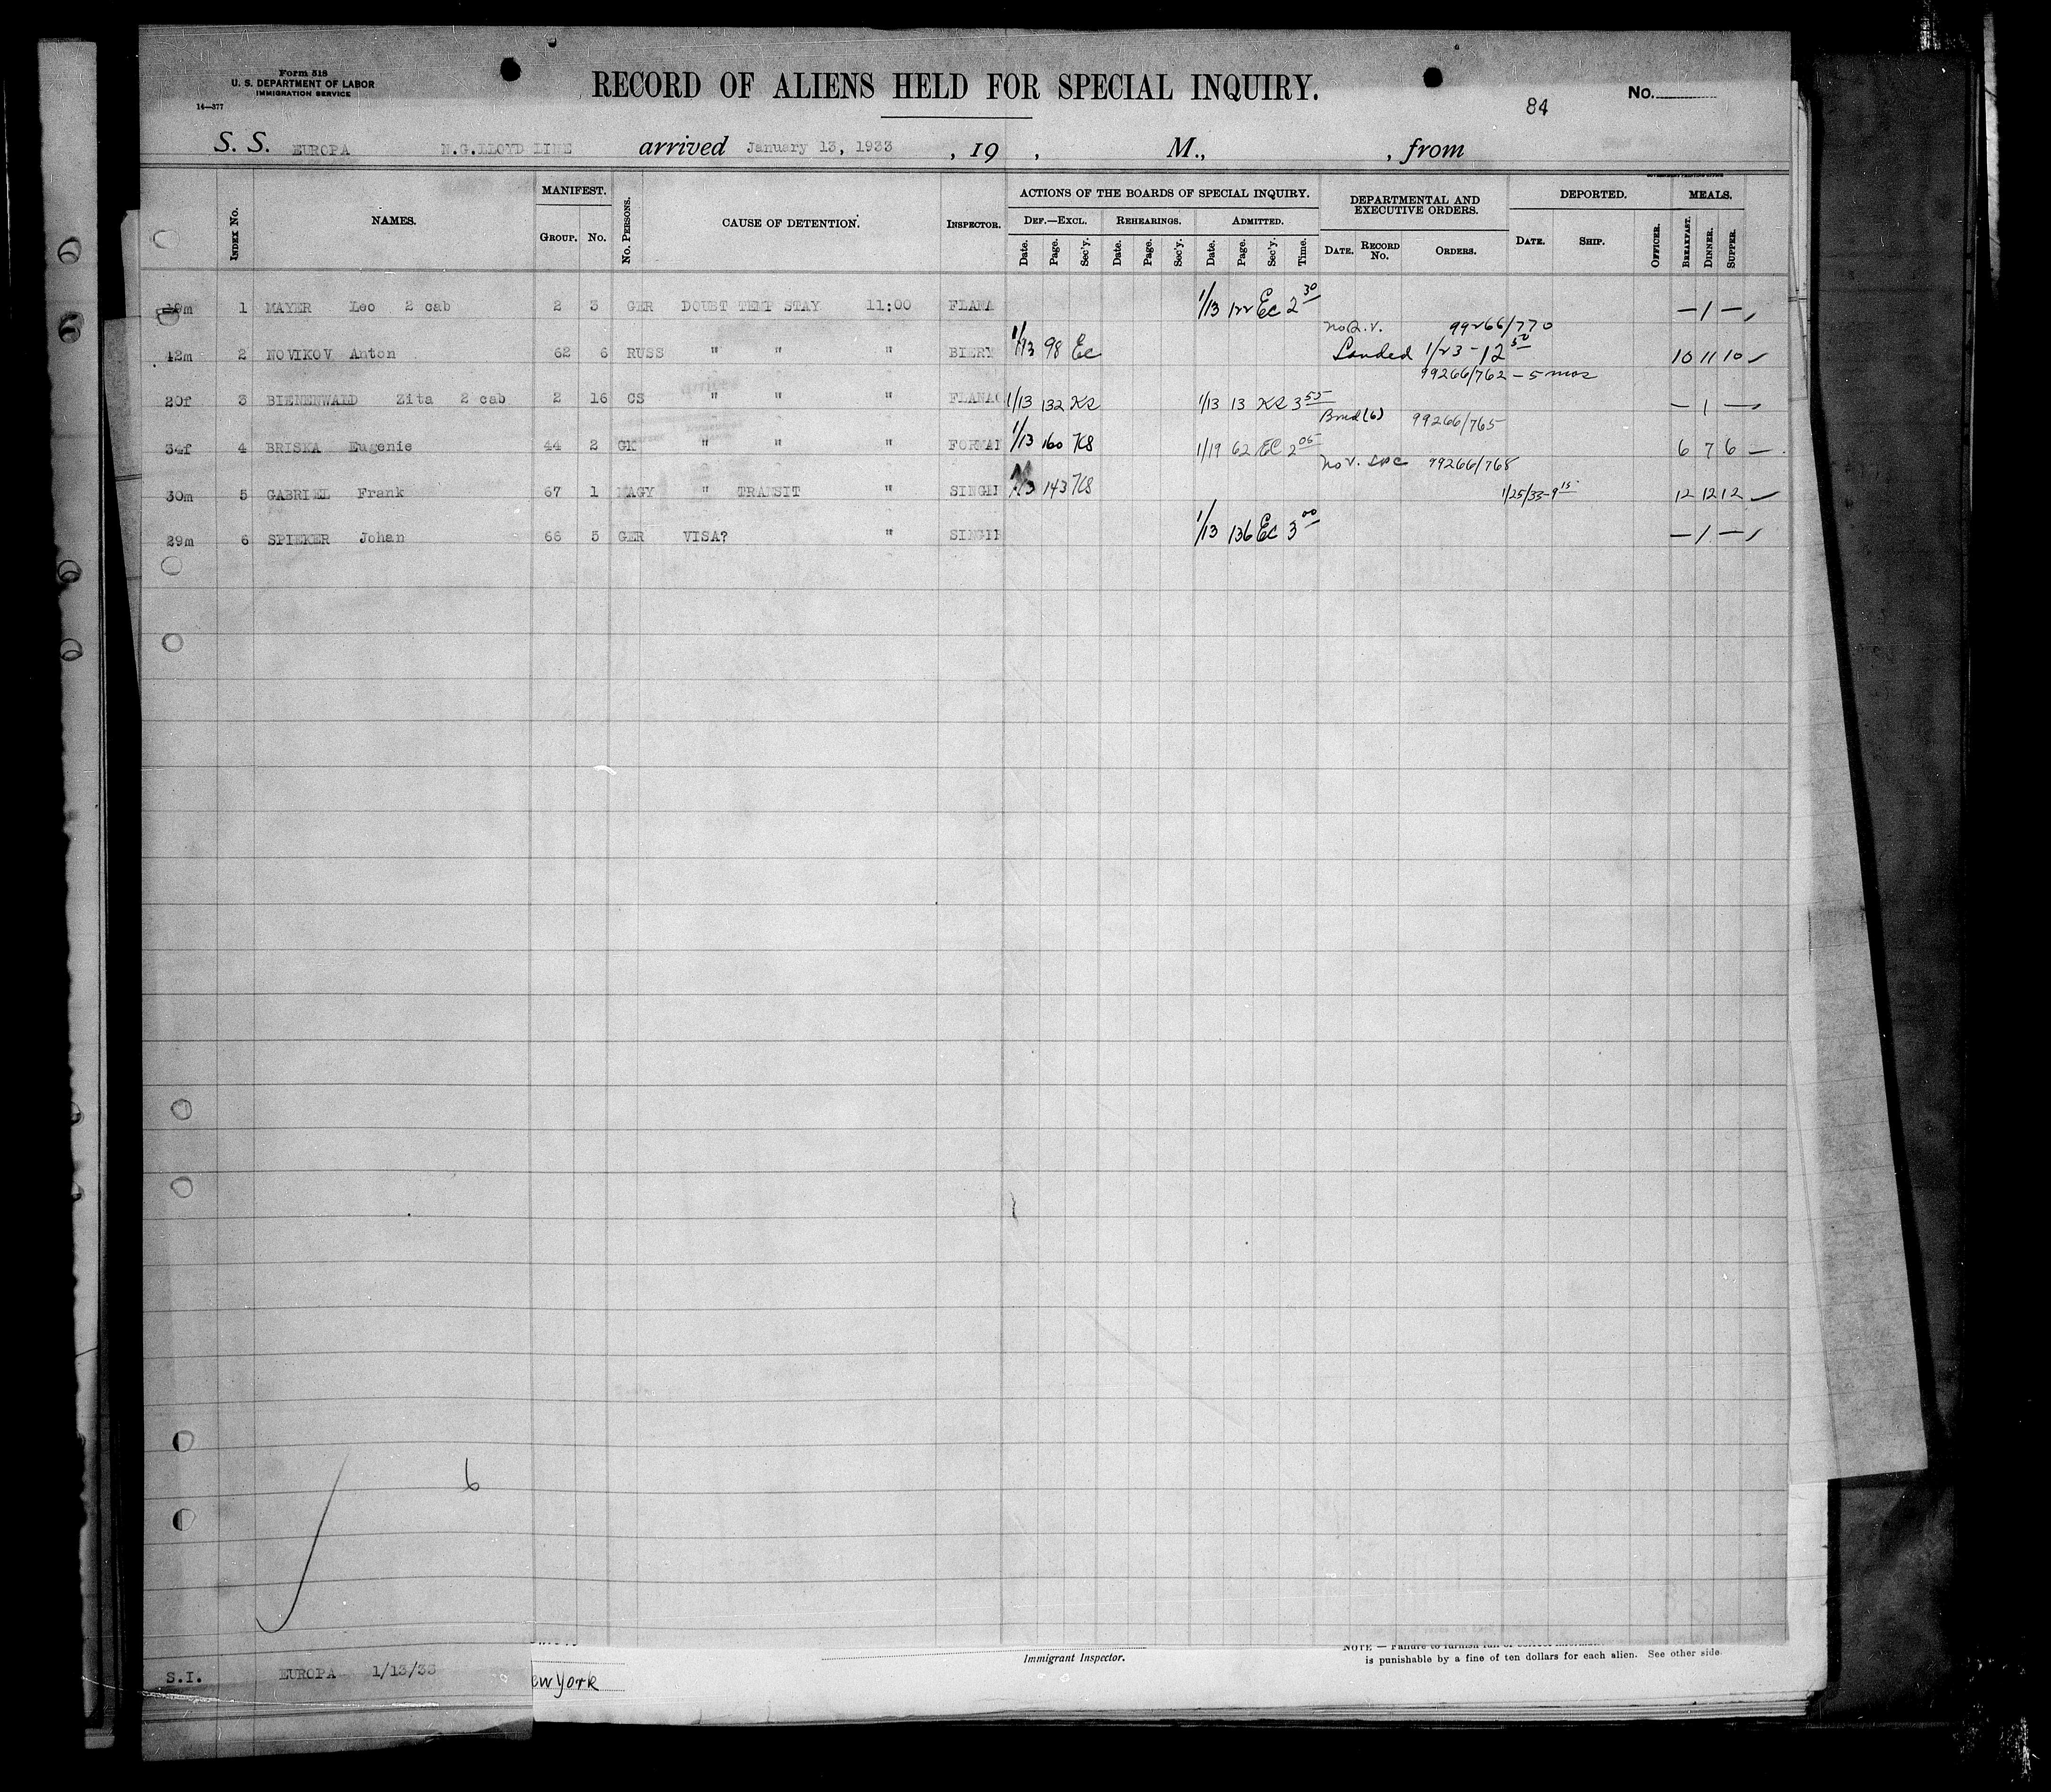 Form 518
U. S. DEPARTMENT OF LABOR
IMMIGRATION SERVICE
14—377
RECORD OF ALIENS HELD FOR SPECIAL INQUIRY.
84
No.
S. S. EUROPA N.G.LLOYD LINE arrived January 13, 1933 , 19 , M., , from
GOVERNMENT PRINTING OFFICE
INDEX No. NAMES. MANIFEST. GROUP. No. No. PERSONS. CAUSE OF DETENTION. INSPECTOR. ACTIONS OF THE BOARDS OF SPECIAL INQUIRY. DEPARTMENTAL AND EXECUTIVE ORDERS. DEPORTED. MEALS.
DEF.—EXCL. REHEARINGS. ADMITTED.
Date. Page. Sec'y. Date. Page. Sec'y. Date. Page. Sec'y. Time. DATE. RECORD No. ORDERS. DATE. SHIP. OFFICER. BREAKFAST. DINNER. SUPPER.
m 1 MAYER Leo 2 cab 2 3 GER DOUBT TEMP STAY 11:00 FLANA 1/13 122 Ec 2 30 — 1 —
No R.V. 99266/770
42m 2 NOVIKOV Anton 62 6 RUSS " " " BIERY 1/13 98 Ec Landed 1/23 - 12 50 10 11 10
99266/762 - 5 mos
20f 3 BIENENWALD Zita 2 cab 2 16 CS " " " FLANAG 1/13 132 KS 1/13 13 KS 3 55 — 1 —
Bond (6) 99266/765
34f 4 BRISKA Eugenie 44 2 GK " " " FORMAN 1/13 160 KS 1/19 62 EC 2 05 6 7 6
No V. 99266/768
30m 5 GABRIEL Frank 67 1 MAGY " TRANSIT " SINGE 1/13 143 KS 1/25/33-9 15 12 12 12
29m 6 SPIEKER Johan 66 5 GER VISA? " SINGE 1/13 136 Ec 3 00 — 1 —
6
S.I. EUROPA 1/13/33
ew York
Immigrant Inspector.
NOTE — Failure to furnish full or correct
is punishable by a fine of ten dollars for each alien. See other side